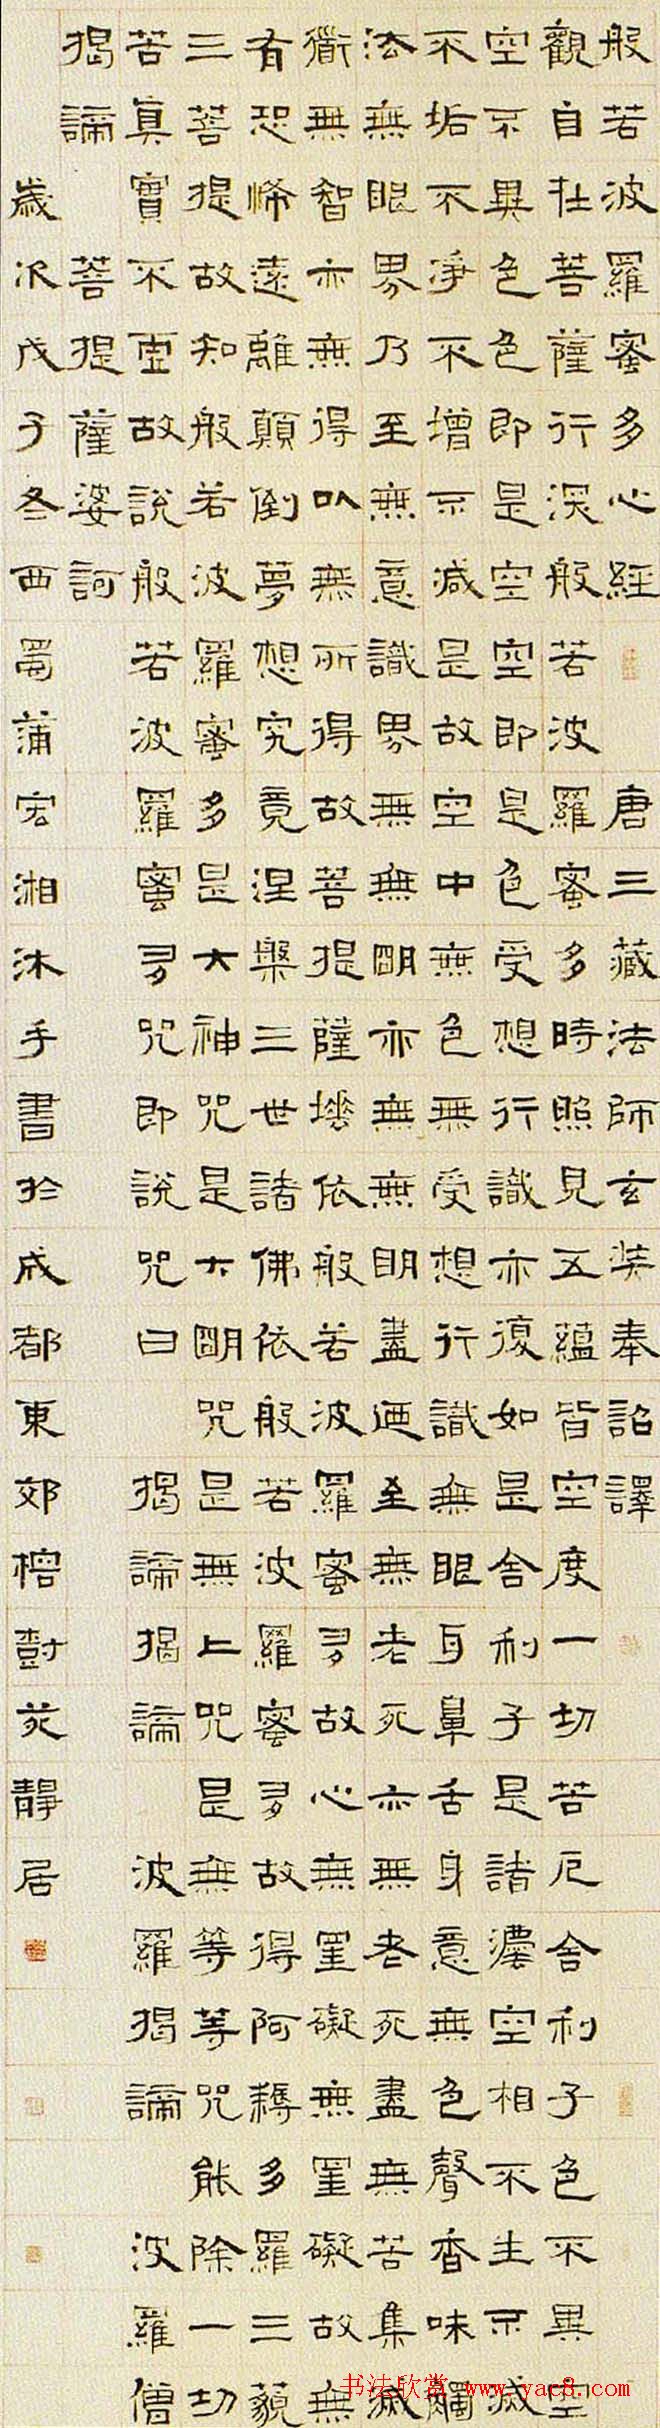 般若波羅蜜多心經 唐三藏法師玄奘奉詔譯
觀自在菩薩行深般若波羅蜜多時照見五蘊皆空度一切苦厄舍利子色不異空
空不異色色即是空空即是色受想行識亦復如是舍利子是諸灋空相不生不滅
不垢不淨不增不減是故空中無色無受想行識無眼耳鼻舌身意無色聲香味觸
法無眼界乃至無意識界無無明亦無無明盡迺至無老死亦無老死盡無苦集滅
衟無智亦無得以無所得故菩提薩埵依般若波羅蜜多故心無罣礙無罣礙故無
有恐怖遠離顛倒夢想究竟涅槃三世諸佛依般若波羅蜜多故得阿耨多羅三藐
三菩提故知般若波羅蜜多是大神咒是大明咒是無上咒是無等等咒能除一切
苦真實不虛故說般若波羅蜜多咒即說咒曰 揭諦揭諦 波羅揭諦 波羅僧
揭諦 菩提薩婆訶
歲次戊子冬西蜀蒲宏湘沐手書於成都東郊榕樹苑靜居
书法欣赏 www.yac8.com